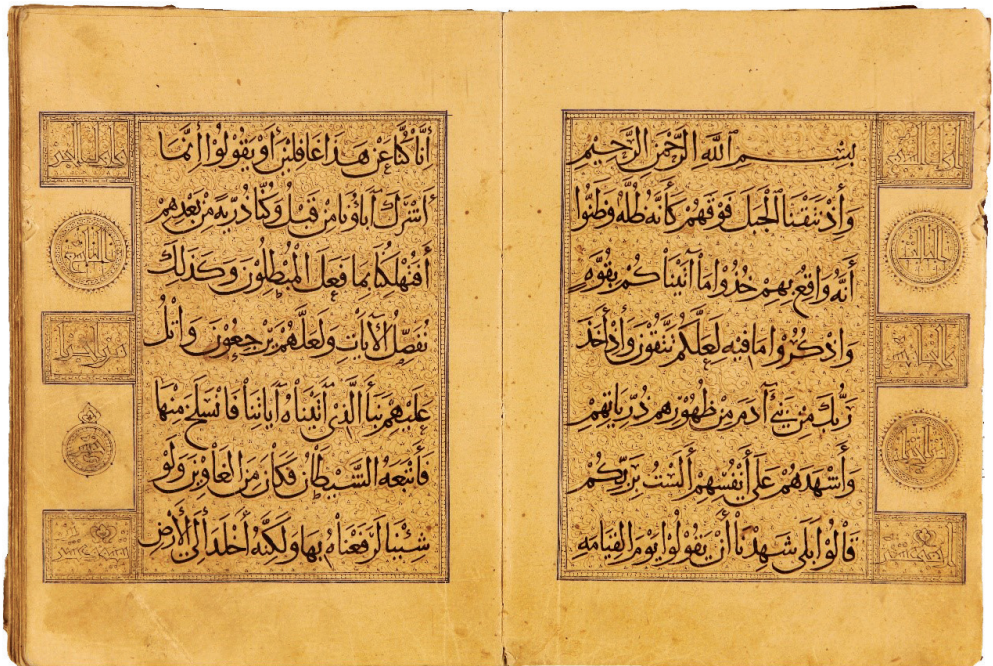 بسم الله الرحمن الرحيم
وَإِذْ نَتَقْنَا الْجَبَلَ فَوْقَهُمْ كَأَنَّهُ ظُلَّه وَظَنُّوا
أَنَّهُ وَاقِعٌ بِهِمْ خُذُوا مَا آتَيْنَاكُمْ بِقُوَّه
وَاذْكُرُوا مَا فِيهِ لَعَلَّكُمْ تَتَّقُونَ وَإِذْ أَخَذَ
رَبُّكَ مِنْ بَنِي آدَمَ مِنْ ظُهُورِهِمْ ذُرِّيَاتِهِمْ
وَأَشْهَدَهُمْ عَلَى أَنْفُسِهِمْ أَلَسْتُ بِرَبِّكُمْ
قَالُوا بَلَى شَهِدْنَا أَنْ يَقُولُوا يَوْمَ الْقِيَامَه
أَنَّا كُنَّا عَنْ هَذَا غَافِلِينَ أَوْ يَقُولُوا إِنَّمَا
أَشْرَكَ آبَاؤُنَا مِنْ قَبْلُ وَكُنَّا ذُرِّيَه مِنْ بَعْدِهِمْ
أَفَتُهْلِكُنَا بِمَا فَعَلَ الْمُبْطِلُونَ وَكَذَلِكَ
نُفَصِّلُ الْآيَاتِ وَلَعَلَّهُمْ يَرْجِعُونَ وَاتْلُ
عَلَيْهِمْ نَبَأَ الَّذِي آتَيْنَاهُ آيَاتِنَا فَانْسَلَخَ مِنْهَا
فَأَتْبَعَهُ الشَّيْطَانُ فَكَانَ مِنَ الْغَاوِينَ وَلَوْ
شِئْنَا لَرَفَعْنَاهُ بِهَا وَلَكِنَّهُ أَخْلَدَ إِلَى الْأَرْضِ